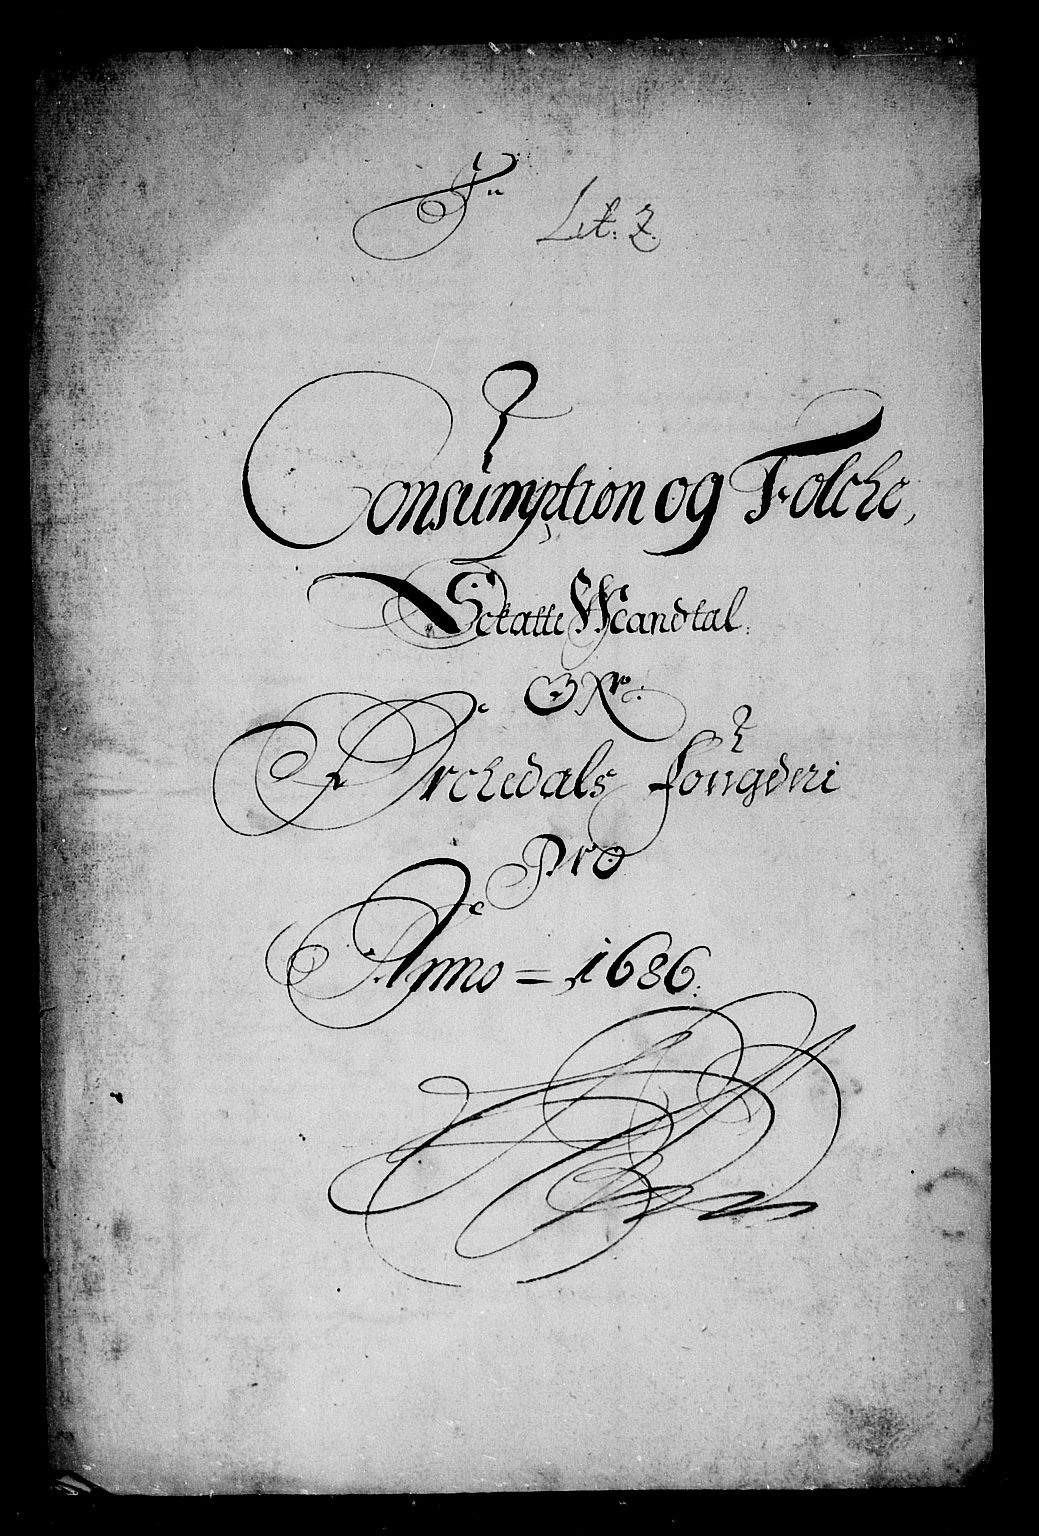 Lit: Z.
Consumption og Folche,
Schatte Mandtal.
Orchedals fougderi
Pro
Anno = 1686.